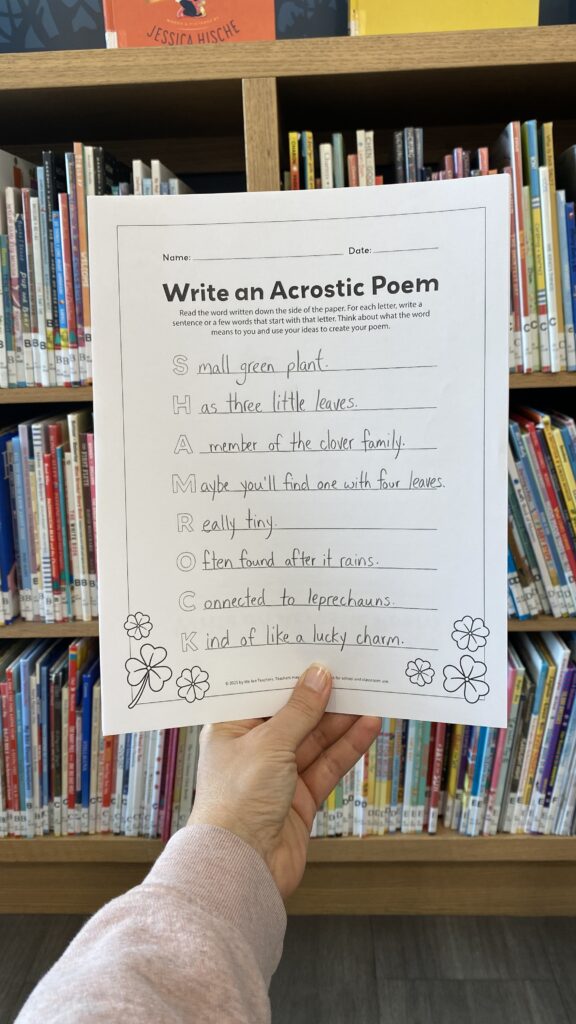 JESSICA HISCHE
Name:
Date:
Write an Acrostic Poem
Read the word written down the side of the paper. For each letter, write a
sentence or a few words that start with that letter. Think about what the word
means to you and use your ideas to create your poem.
Small green plant.
Has three little leaves.
A member of the clover family.
Maybe you'll find one with four leaves.
Really tiny.
Often found after it rains.
Connected to leprechauns.
Kind of like a lucky charm.
© 2025 by We Are Teachers. Teachers may for school and classroom use.